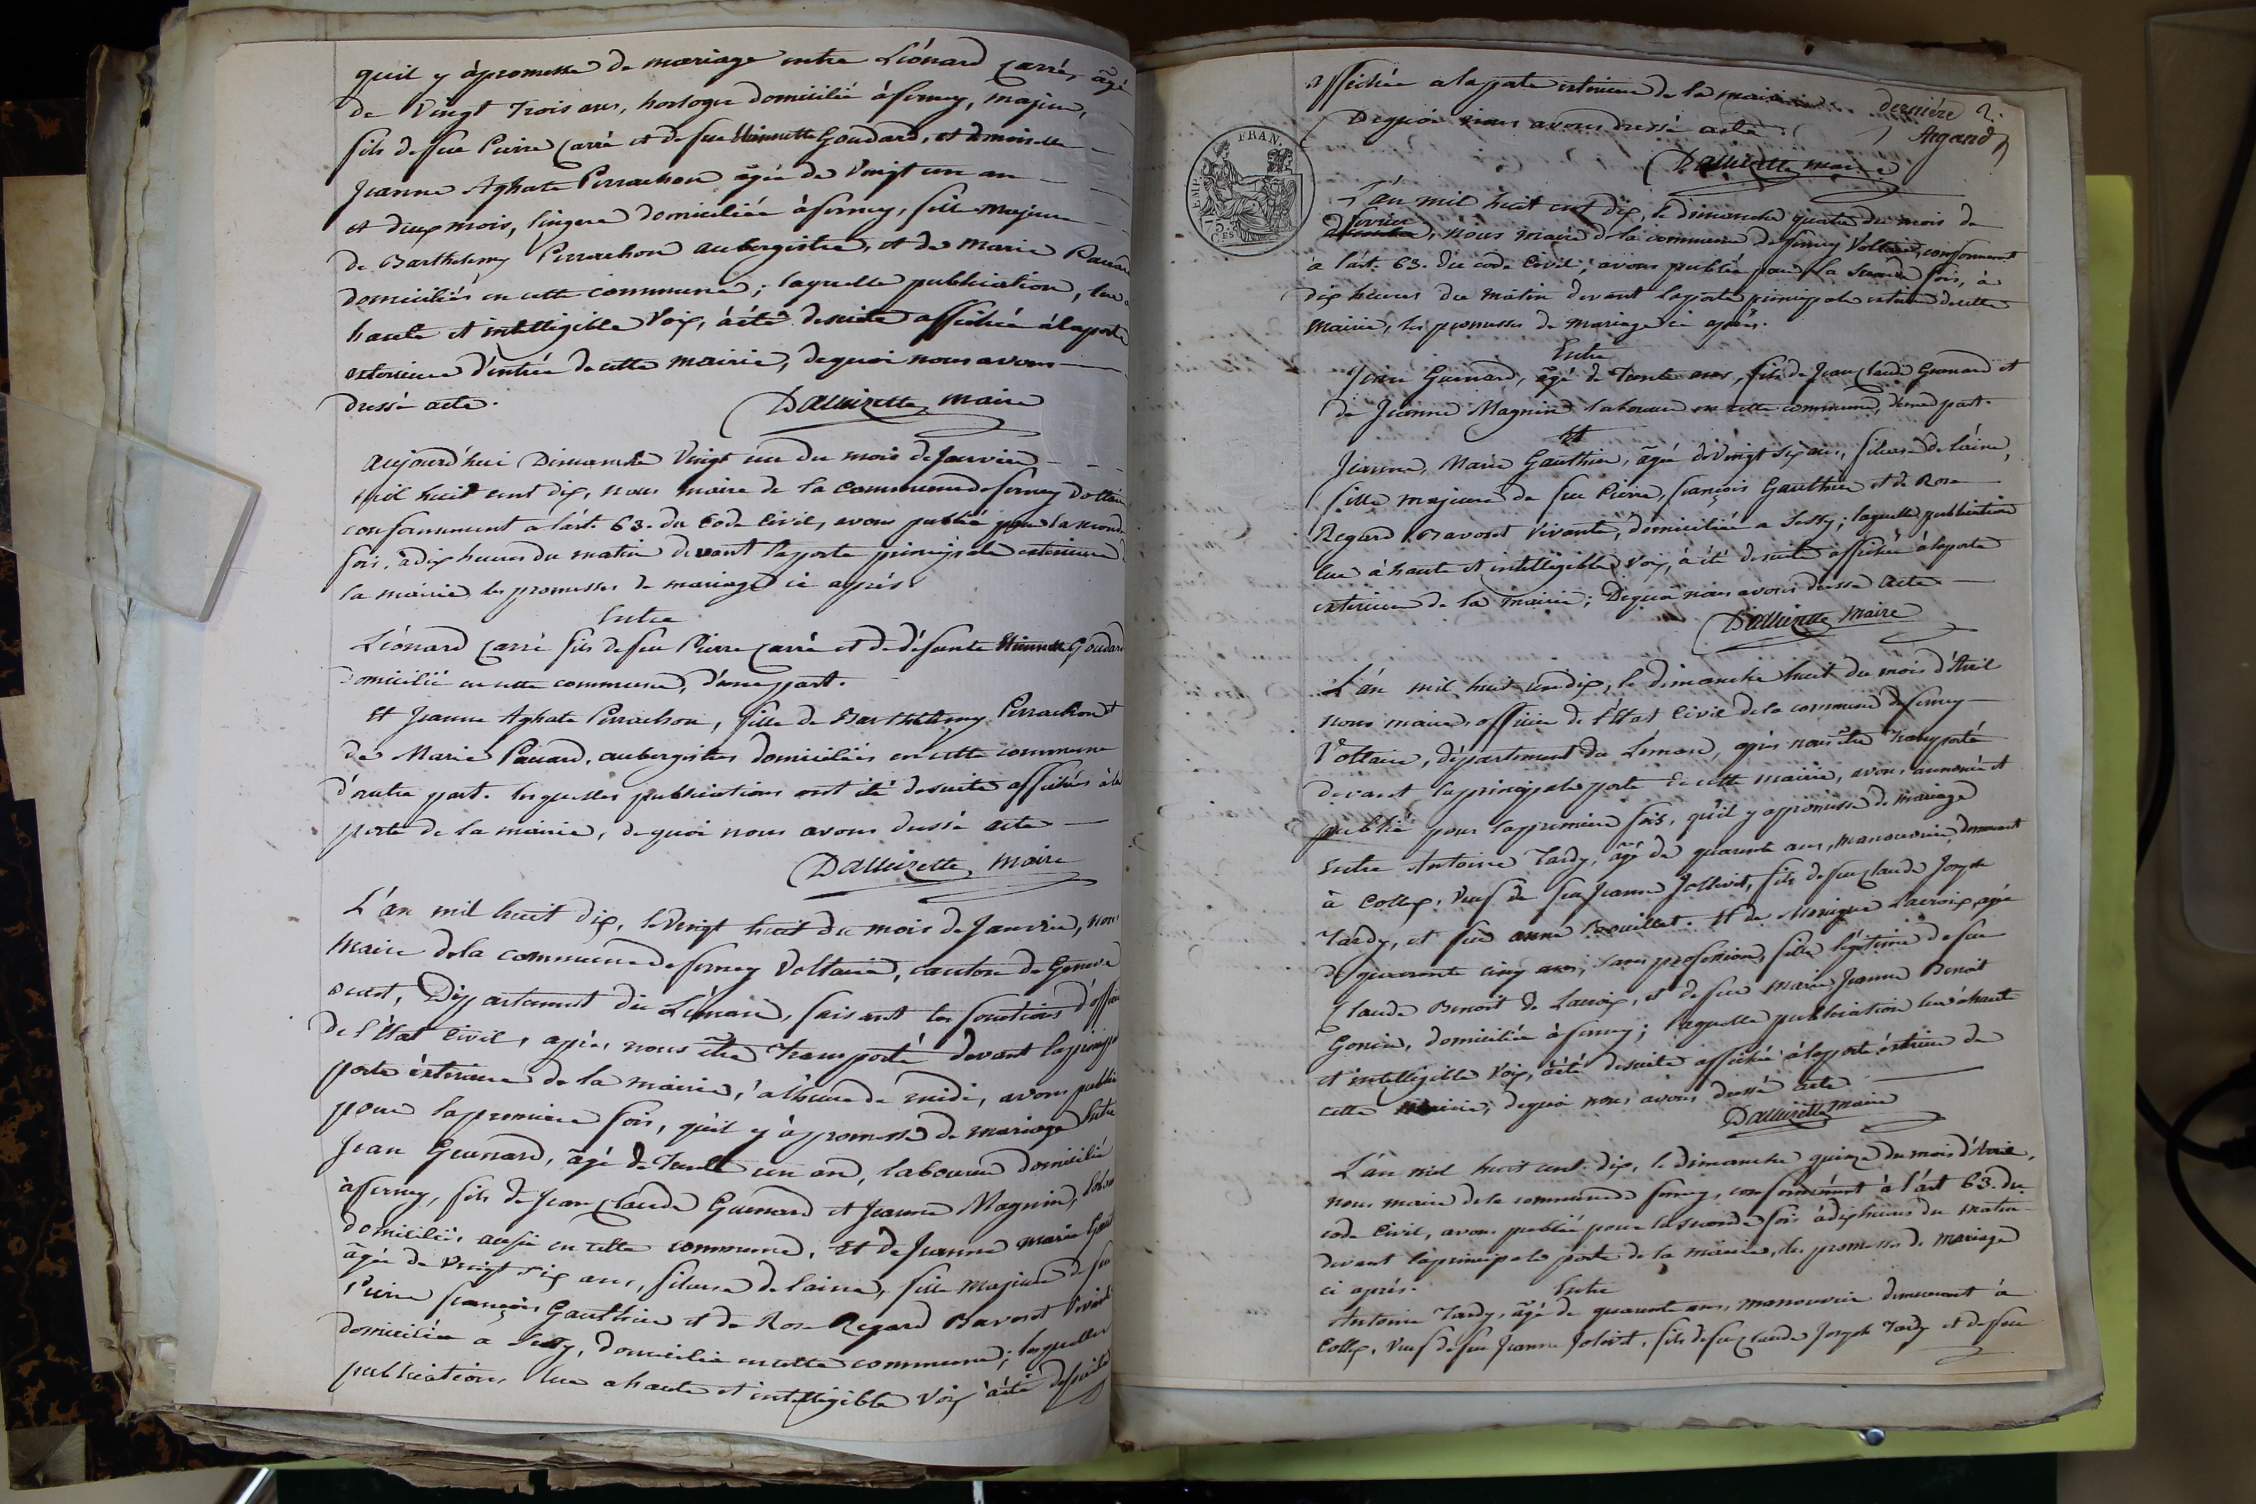 qu'il y à promesse de mariage entre Léonard Carré, agé
de Vingt Trois ans, horloger domicilié à ferney, majeur,
fils de feu Pierre Carré et de feue Etiennette Goudard, et demoiselle
Jeanne Aghate Perrachon agée de Vingt un an
et deux mois, lingere domiciliée à ferney, fille majeure
de Barthelemy Perrachon aubergistes, et de Marie
domiciliés en cette commune; laquelle publication, lue a
haute et intelligible Voix, à été de suite affichée à la porte
exterieure d'entrée de cette mairie, de quoi nous avons
dressé acte.
Dallizette maire
Aujourd'hui Dimanche Vingt un du mois de Janvier
mil huit cent dix, nous maire de la Commune de ferney Voltaire
conformement a l'art. 63. du Code Civil, avons publié pour la seconde
fois, à dix heures du matin devant la porte principale exterieure de
la mairie les promesses de mariage ci après.
Entre
Léonard Carré fils de feu Pierre Carré et de défunte Etiennette Goudard
domicilié en cette commune, d'une part.
Et Jeanne Aghate Perrachon, fille de Barthélemy Perrachon et
de Marie aubergistes domiciliés en cette commune
d'autre part. lesquelles publications ont été de suite affichées à la
porte de la mairie, de quoi nous avons dressé acte
Dallizette maire
L'an mil huit dix, le Vingt huit du mois de Janvier, nous
Maire de la commune de ferney Voltaire, canton de Geneve
ouest, Département du Léman, faisant les fonctions d'officier
de l'Etat Civil, après nous être transporté devant la principale
porte éxterieure de la mairie, à l'heure de midi, avons publié
pour la premiere fois, qu'il y à promesse de mariage Entre
Jean Guenard, âgé de Trente un an, laboureur domicilié
à ferney, fils de Jean Claude Guenard et Jeanne Magnin,
domiciliés aussi en cette commune, Et de Jeanne Marie
âgée de Vingt six ans, fileuse de laine, fille majeure de feu
Pierre françois Gauthier et de Rose Regard Bavoret Vivante
domiciliée a domicilié en cette commune; lesquelles
publications lue a haute et intelligible Voix à été de suite
affichée a la porte exterieure de la mairie dernière 2.
De quoi nous avons dressé acte. Argand
FRAN.
EMP.
Dallizette maire
L'an mil huit cent dix, le dimanche quatre du mois de
fevrier
nous maire de la commune de ferney Voltaire, conformement
à l'art. 63. du code Civil, avons publié pour la Seconde fois, à
dix heures du matin devant la porte principale exterieure de cette
Mairie, les promesses de mariage ci après.
Entre
Jean Guenard, âgé de Trente ans, fils de Jean Claude Guenard et
de Jeanne Magnin laboureur en cette commune, d'une part.
Et
Jeanne, Marie Gauthier, agée de Vingt six ans, fileuse de laine,
fille majeure de feu Pierre, françois Gauthier et de Rose
Regard Bavoret Vivante, domiciliée a laquelle publication
lue à haute et intelligible Voix, à été de suite affichée à la porte
exterieure de la Mairie; De quoi nous avons dressé Acte
Dallizette maire
L'an mil huit cent dix, le dimanche huit du mois d'Avril
nous maire, officier de l'Etat Civil de la commune de ferney
Voltaire, département du Léman, après nous être transporté
devant la principale porte de cette mairie, avons annoncé et
publié pour la premiere fois, qu'il y a promesse de mariage
entre Antoine Tardy, âgé de quarante ans, manouvrier, demeurant
à Collex, Veuf de feu Jeanne Jollivet, fils de feu Claude Joseph
Tardy, et feue anne Et de Monique Lacroix, agée
de quarante cinq ans, sans profession, fille légitime de feu
Claude Benoit de Lacroix, et de feue Marie Jeanne Benoit
Gonin, domiciliée à ferney; laquelle publication lue à haute
et intelligible Voix, à été de suite affichée à la porte éxterieure de
cette mairie, de quoi nous avons dressé acte
Dallizette maire
L'an mil huit cent dix, le dimanche quinze du mois d'Avril,
nous maire de la commune de ferney, conformement à l'art 63. du
code Civil, avons publié pour la seconde fois à dix heures du matin
devant la principale porte de la mairie, les promesses de mariage
ci après. Entre
Antoine Tardy, âgé de quarante ans, manouvrier demeurant à
Collex, Veuf de feu Jeanne Jolivet, fils de feu Claude Joseph Tardy et de feue